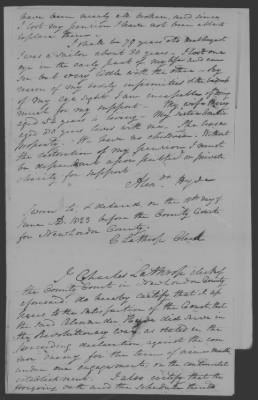 have been nearly all broken, and since
I lost my pension I have not been able to
replace them.
I shall be 78 years old next August
I was a sailor about 30 years. I lost one
eye in the early part of my life and can
see but very little with the other. By
reason of my bodily infirmities & the loss
of my eye sight I am incapable of doing
much for my support. My wife
aged 52 years is living. My sister
aged 80 years lives with me. She has no
property. We have no children. Without
the restoration of my pension I must
be dependent upon publick or private
charity for support
Alexr Hyde
Sworn to, & declared on the 11th day of
June AD. 1823 before the County Court
for New London County.
C Lathrop Clerk
I Charles Lathrop clerk of
the County Court in New London County
aforesaid do hereby certify that it ap
pears to the satisfaction of the Court that
the said Alexander Hyde did serve in
the Revolutionary War as stated in the
preceding declaration against the com
mon enemy for the term of nine months
under one engagement, on the continental
establishment. I also certify that the
foregoing oath and the schedule thereto